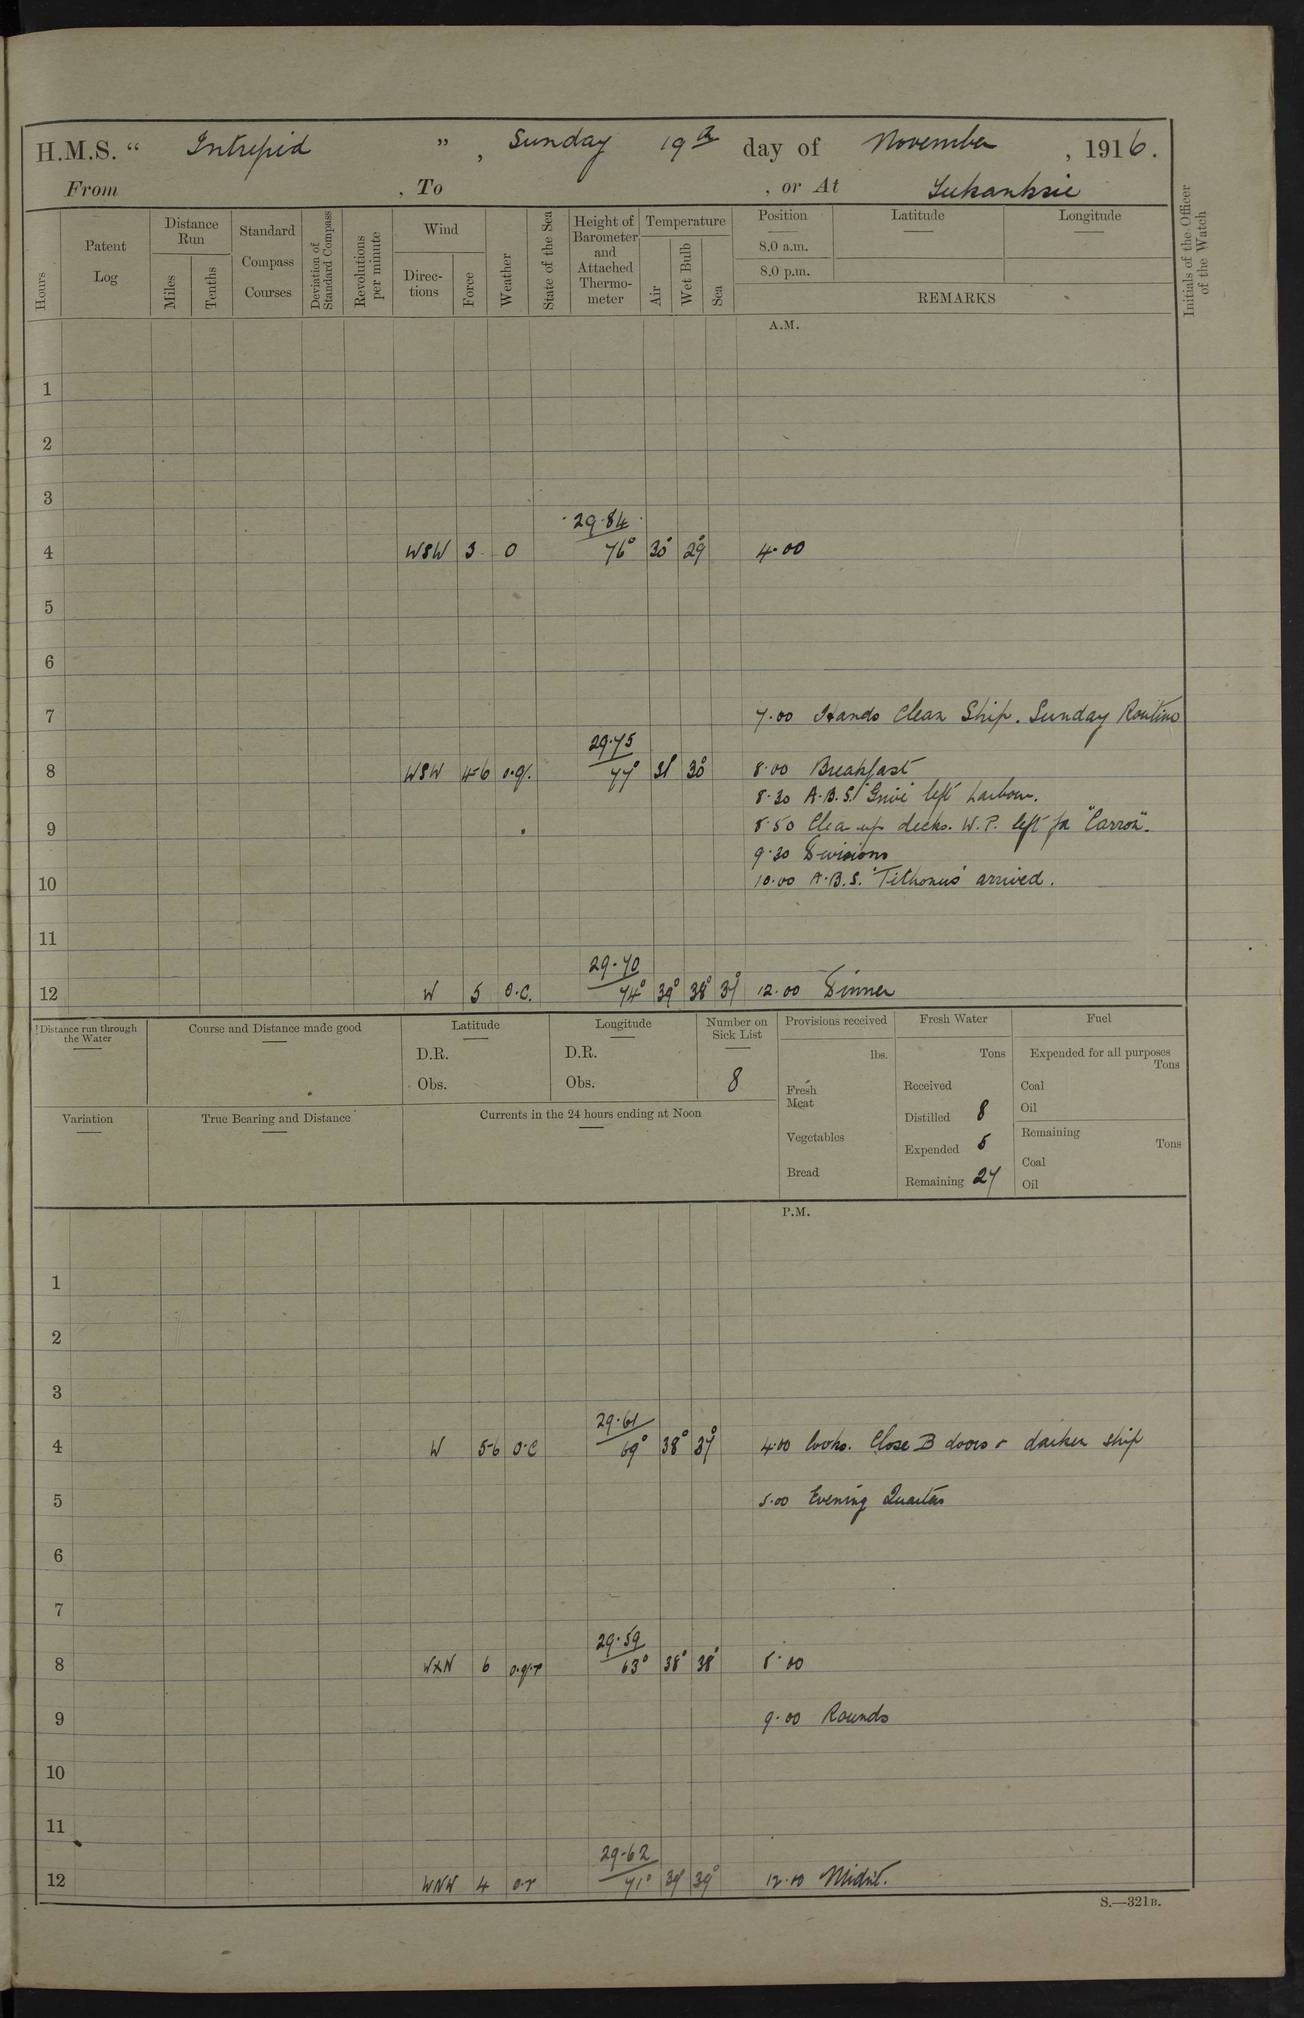 H.M.S. “ Intrepid ” , Sunday 19th day of November , 1916.
From , To , or At Yukanskie
Hours
Patent Log
Distance Run
Miles
Tenths
Standard Compass Courses
Deviation of Standard Compass
Revolutions per minute
Wind
Direc-tions
Force
Weather
State of the Sea
Height of Barometer and Attached Thermo-meter
Temperature
Air
Wet Bulb
Sea
Position
8.0 a.m.
8.0 p.m.
Latitude
Longitude
REMARKS
Initials of the Officer of the Watch
A.M.
1
2
3
29.84
4 WSW 3 0 76° 30° 29° 4.00
5
6
7 7.00 Hands Clean Ship. Sunday Routine
29.75
8 WSW 4-6 o.q. 77° 31° 30° 8.00 Breakfast
8.30 A.B.S. left harbour.
9 8.50 Clear up decks. W.P. left for "Carron".
9.30 Divisions
10 10.00 A.B.S. 'Tithonus' arrived.
11
29.70
12 W 5 o.c. 74° 39° 38° 37° 12.00 Dinner
Distance run through the Water
Course and Distance made good
Latitude
D.R.
Obs.
Longitude
D.R.
Obs.
Number on Sick List
8
Provisions received
lbs.
Fresh Meat
Vegetables
Bread
Fresh Water
Tons
Received
Distilled 8
Expended 5
Remaining 27
Fuel
Expended for all purposes
Tons
Coal
Oil
Remaining
Tons
Coal
Oil
Variation
True Bearing and Distance
Currents in the 24 hours ending at Noon
P.M.
1
2
3
29.61
4 W 5-6 o.c 69° 38° 37° 4.00 Cooks. Close B doors & darken ship
5 5.00 Evening Quarters
6
7
29.59
8 WxN 6 o.q.r 63° 38° 38° 8.00
9 9.00 Rounds
10
11
29.62
12 WNW 4 o.r 71° 39° 39° 12.00 Midnt.
S.—321B.